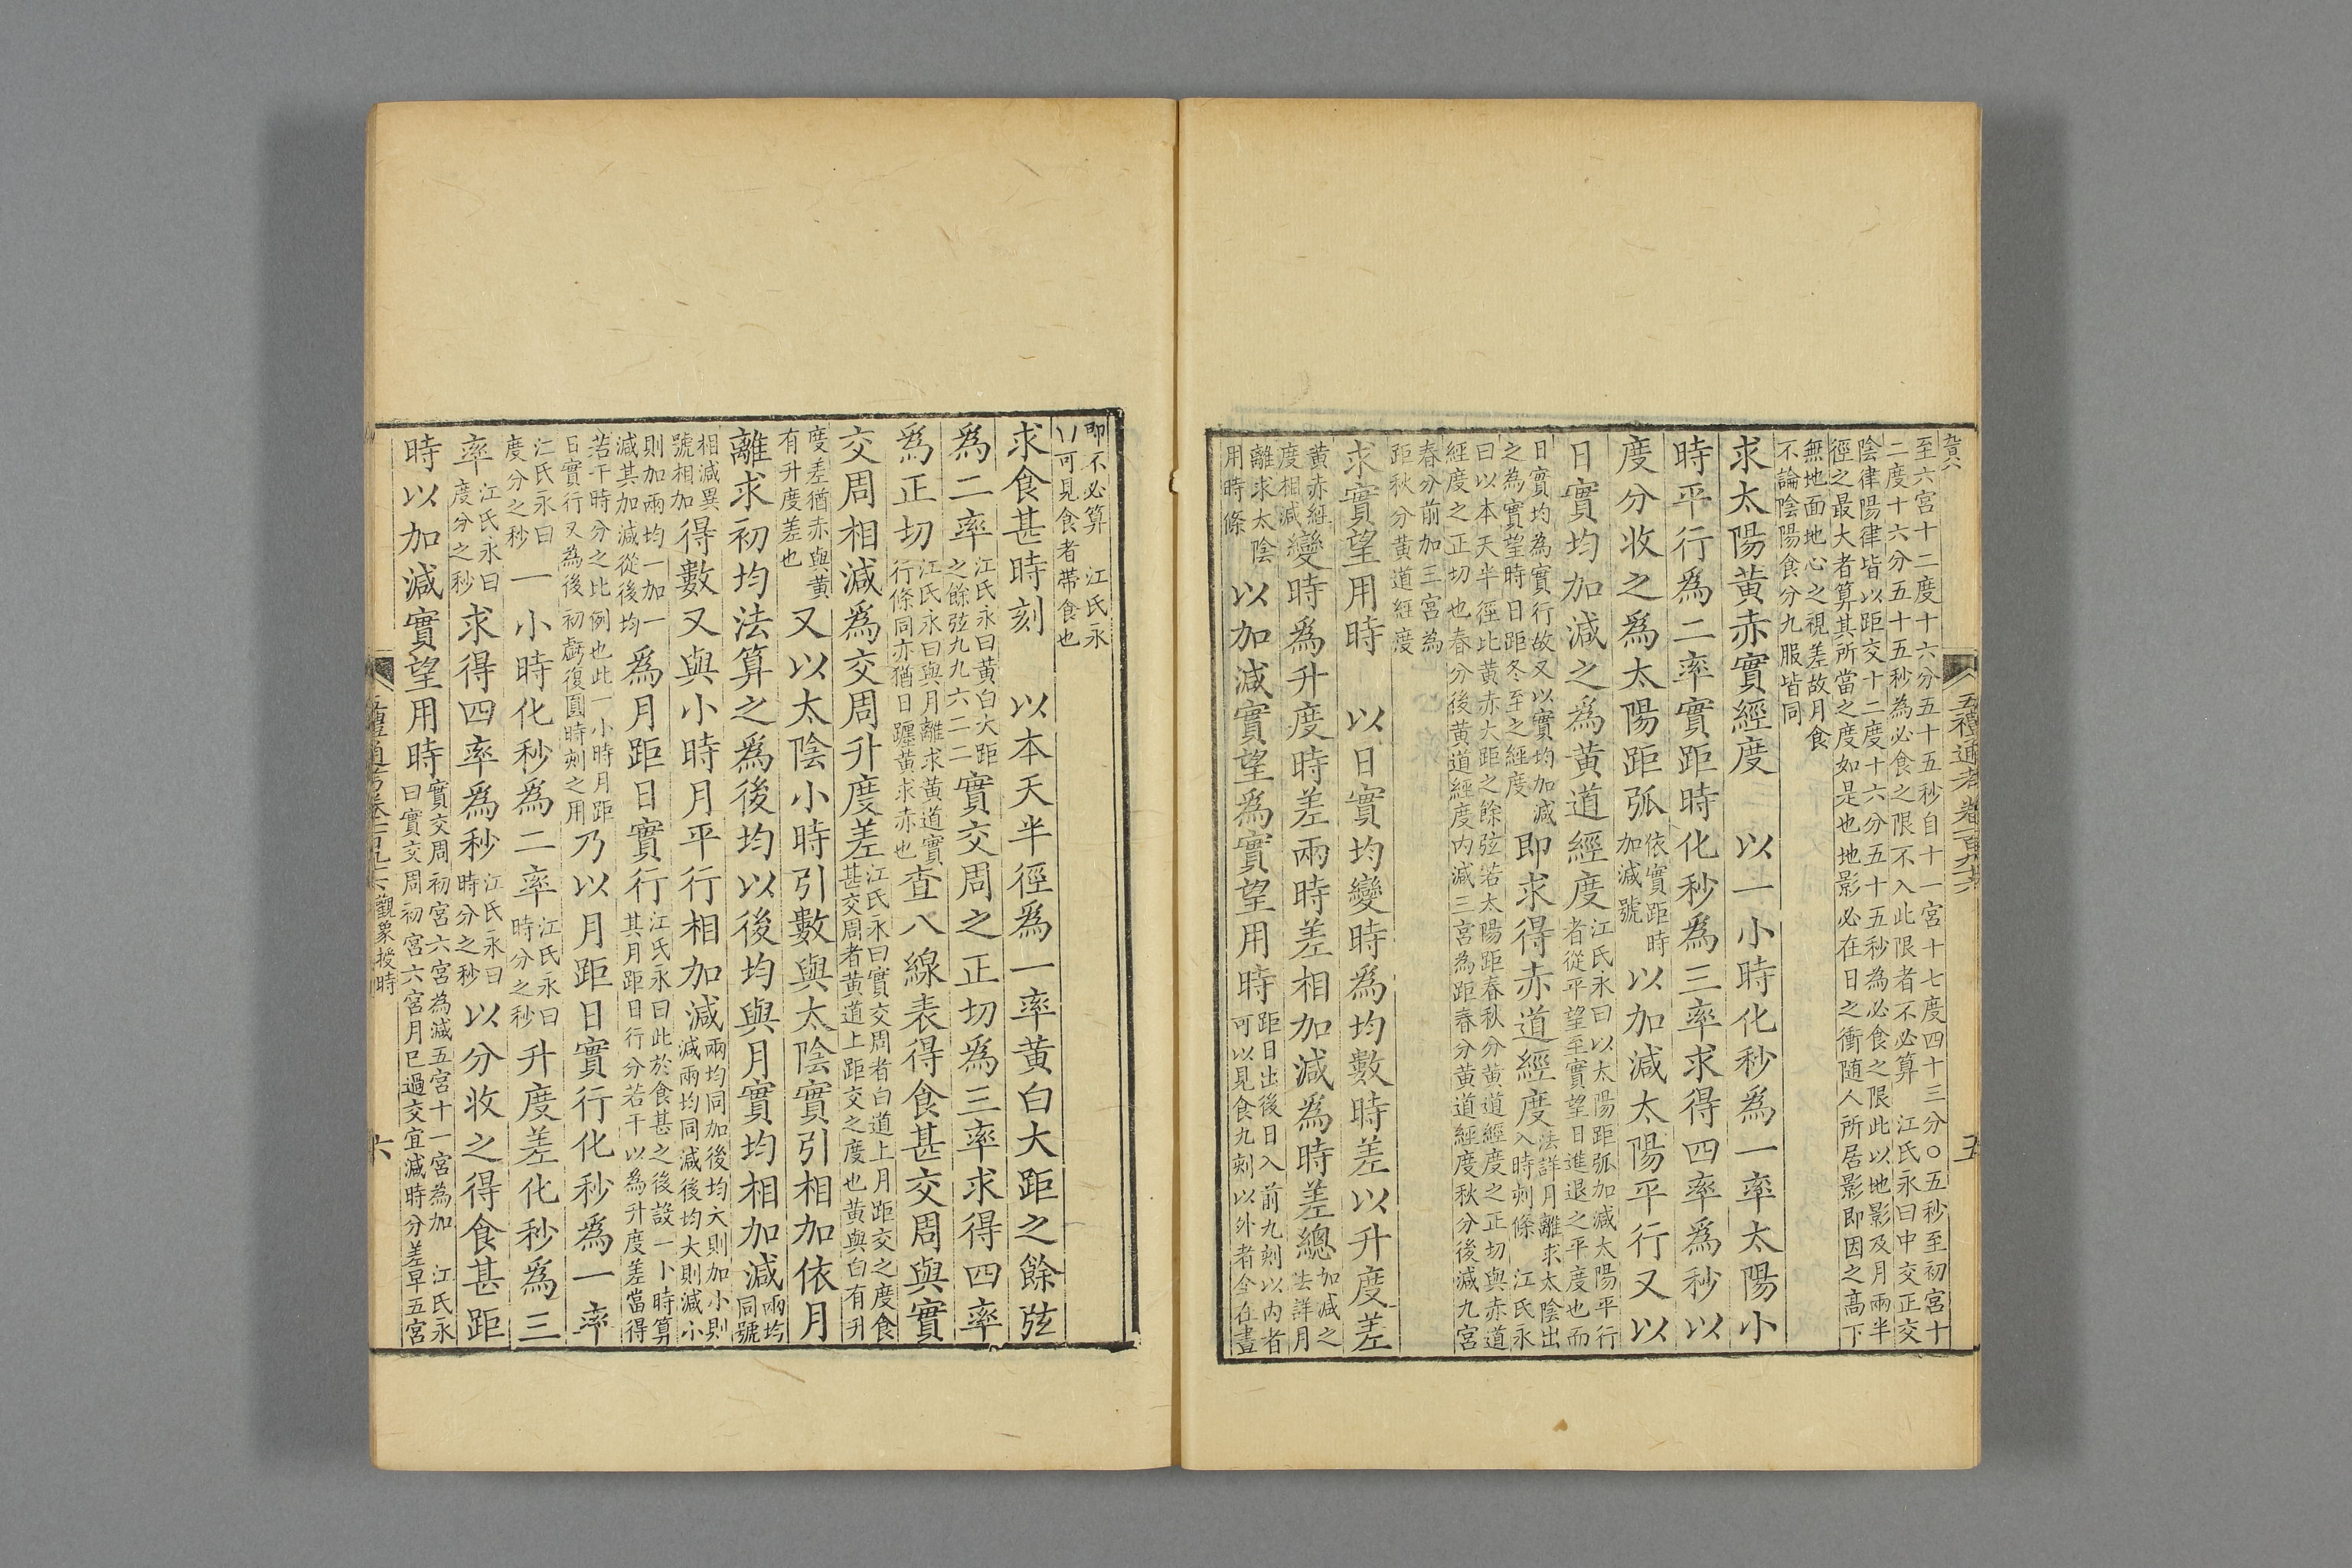 五禮通考卷一百九十六
五
至六宮十二度十六分五十五秒自十一宮十七度四十三分〇五秒至初宮十
二度十六分五十五秒為必食之限不入此限者不必算　江氏永曰中交正交
陰律陽律皆以距交十二度十六分五十五秒為必食之限此以地影及月兩半
徑之最大者算其所當之度如是也地影必在日之衝隨人所居影即因之高下
無地面地心之視差故月食
不論陰陽食分九服皆同
求太陽黃赤實經度　以一小時化秒為一率太陽小
時平行為二率實距時化秒為三率求得四率為秒以
度分收之為太陽距弧依實距時加減號以加減太陽平行又以
日實均加減之為黃道經度江氏永曰以太陽距弧加減太陽平行者從平望至實望日進退之平度也而
日實均為實行故又以實均加減之為實望時日距冬至之經度即求得赤道經度法詳月離求太陰出入時刻條　江氏永
曰以本天半徑比黃赤大距之餘弦若太陽距春秋分黃道經度之正切與赤道
經度之正切也春分後黃道經度內減三宮為距春分黃道經度秋分後減九宮
春分前加三宮為
距秋分黃道經度
求實望用時　以日實均變時為均數時差以升度差
黃赤經度相減變時為升度時差兩時差相加減為時差總加減之法詳月
離求太陰用時條以加減實望為實望用時距日出後日入前九刻以內者可以見食九刻以外者全在晝
即不必算　江氏永
以可見食者帶食也
求食甚時刻　以本天半徑為一率黃白大距之餘弦
為二率江氏永曰黃白大距之餘弦九九六二二實交周之正切為三率求得四率
為正切江氏永曰與月離求黃道實行條同亦猶日躔黃求赤也查八線表得食甚交周與實
交周相減為交周升度差江氏永曰實交周者白道上月距交之度食甚交周者黃道上距交之度也黃與白有升
度差猶赤與黃有升度差也又以太陰小時引數與太陰實引相加依月
離求初均法算之為後均以後均與月實均相加減兩均同號
相減異號相加得數又與小時月平行相加減兩均同加後均大則加小則減兩均同減後均大則減小
則加兩均一加一減其加減從後均為月距日實行江氏永曰此於食甚之後設一小時算其月距日行分若干以為升度差當得
若干時分之比例也此一小時月距日實行又為後初虧復圓時刻之用乃以月距日實行化秒為一率
江氏永曰度分之秒一小時化秒為二率江氏永曰時分之秒升度差化秒為三
率江氏永曰度分之秒求得四率為秒江氏永曰時分之秒以分收之得食甚距
時以加減實望用時實交周初宮六宮為減五宮十一宮為加　江氏永曰實交周初宮六宮月已過交宜減時分差早五宮
觀象授時
六